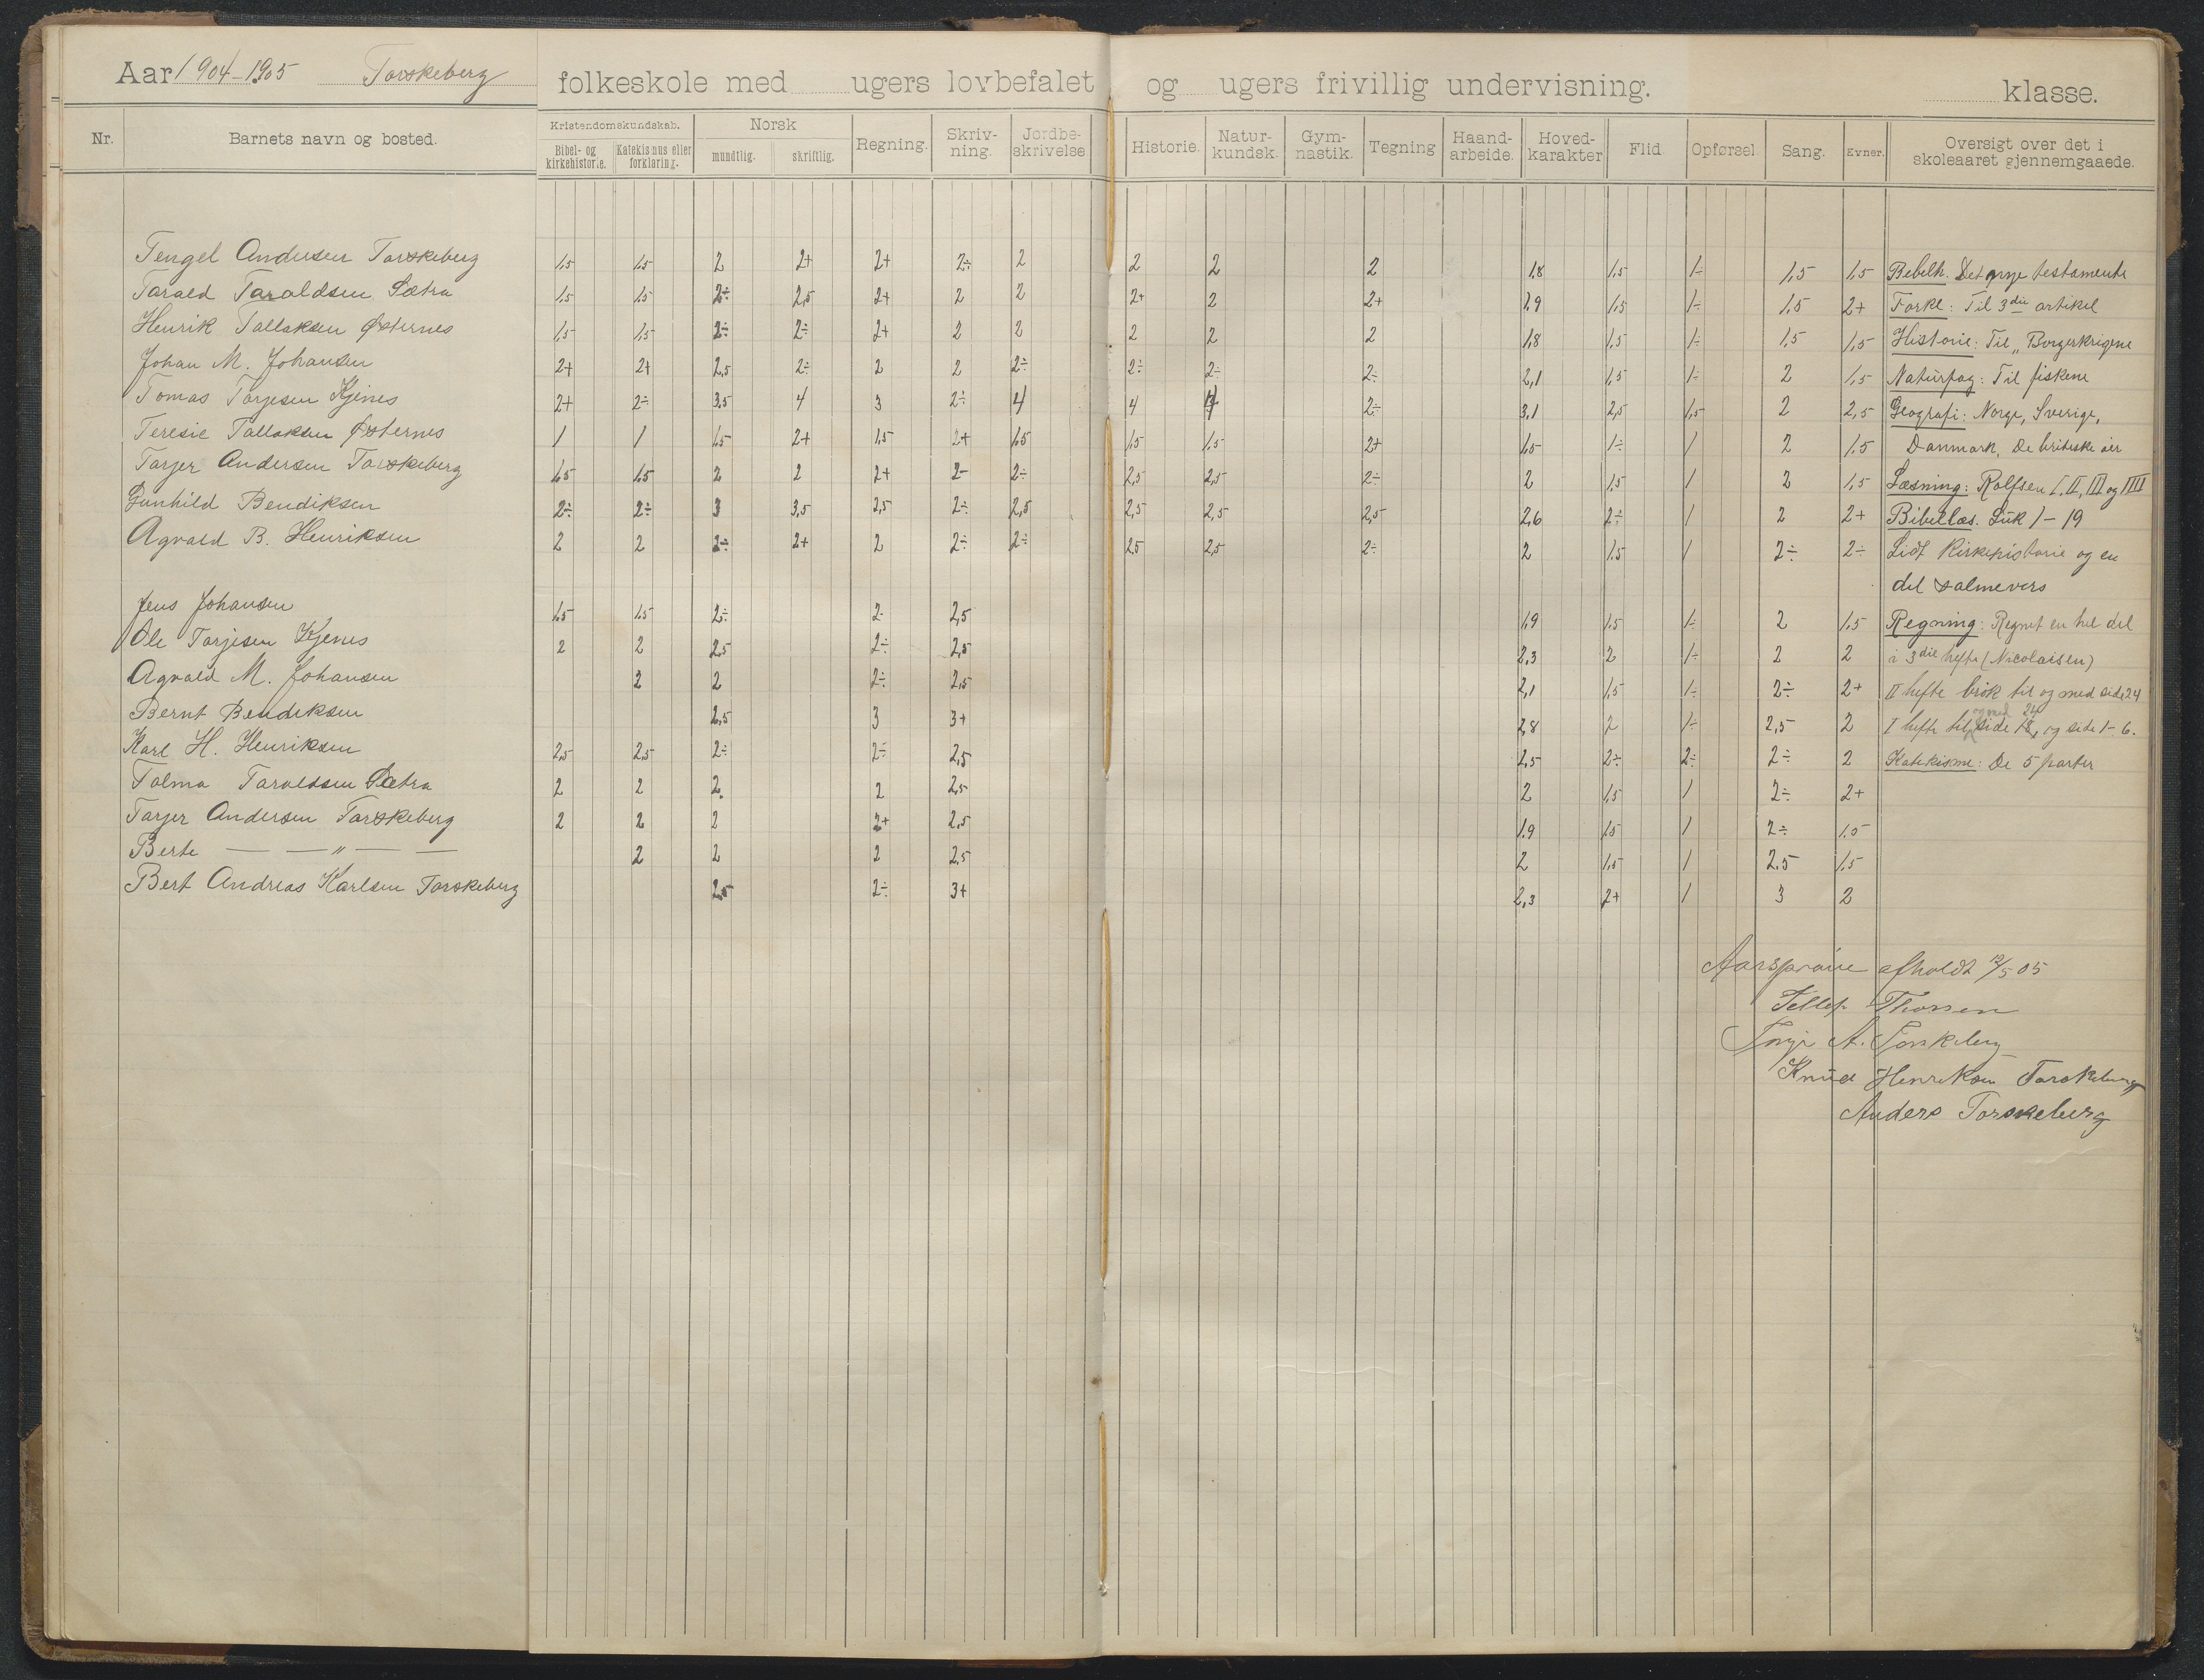 Aar 1904-1905 Torskeberg folkeskole med ugers lovbefalet og ugers frivillig undervisning. klasse.
Nr. Barnets navn og bosted. Kristendomskundskab. Bibel- og kirkehistorie. Katekismus eller forklaring. Norsk mundtlig. skriftlig. Regning. Skriv-ning. Jordbe-skrivelse Historie. Natur-kundsk. Gym-nastik. Tegning Haand-arbeide. Hoved-karakter Flid Opførsel. Sang. Evner. Oversigt over det i skoleaaret gjennemgaaede.
Tengel Andersen Torskeberg 1,5 1,5 2 2+ 2+ 2÷ 2 2 2 2 1,8 1,5 1÷ 1,5 1,5 Bibelh. Det nye testamente
Tarald Taraldsen Sætra 1,5 1,5 2÷ 2,5 2+ 2 2 2+ 2 2+ 1,9 1,5 1÷ 1,5 2+ Forkl: Til 3die artikel
Henrik Tallaksen Østernes 1,5 1,5 2÷ 2÷ 2+ 2 2 2 2 2 1,8 1,5 1÷ 1,5 1,5 Historie: Til „Borgerkrigene
Johan M. Johansen 2+ 2+ 2,5 2÷ 2 2 2÷ 2÷ 2÷ 2÷ 2,1 1,5 1÷ 2 1,5 Naturfag: Til fiskene
Tomas Torjesen Kjenes 2+ 2÷ 3,5 4 3 2÷ 4 4 4 2÷ 3,1 2,5 1,5 2 2,5 Geografi: Norge, Sverige,
Teresie Tallaksen Østernes 1 1 1,5 2+ 1,5 2+ 1,5 1,5 1,5 2+ 1,5 1÷ 1 2 1,5 Danmark, De britiske øer
Torjer Andersen Torskeberg 1,5 1,5 2 2 2+ 2- 2÷ 2,5 2,5 2÷ 2 1,5 1 2 1,5 Læsning: Rolfsen I, II, III og IIII
Gunhild Bendiksen 2÷ 2÷ 3 3,5 2,5 2÷ 2,5 2,5 2,5 2,5 2,6 2÷ 1 2 2+ Bibellæs. Luk 1-19
Agvald B. Henriksen 2 2 2÷ 2+ 2 2÷ 2÷ 2,5 2,5 2÷ 2 1,5 1 2÷ 2÷ Lidt Kirkehistorie og en
del salmevers
Jens Johansen 1,5 1,5 2÷ 2- 2,5 1,9 1,5 1÷ 2 1,5 Regning: Regnet en hel del
Ole Torjesen Kjenes 2 2 2,5 2÷ 2,5 2,3 2 1÷ 2 2 i 3die hefte (Nicolaisen)
Agvald M. Johansen 2 2 2÷ 2,5 2,1 1,5 1÷ 2÷ 2+ II hefte brøk til og med side 24
Bernt Bendiksen 2,5 3 3+ 2,8 2 1÷ 2,5 2 I hefte til og med side 18, 24 og side 1-6.
Karl H. Henriksen 2,5 2,5 2÷ 2÷ 2,5 2,5 2÷ 2÷ 2÷ 2 Katekisme: De 5 parter
Tolma Taraldsen Sætra 2 2 2. 2 2,5 2 1,5 1 2÷ 2+
Torjer Andersen Torskeberg 2 2 2 2+ 2,5 1,9 1,5 1 2÷ 1,5
Berte — — „ — — 2 2 2 2,5 2 1,5 1 2,5 1,5
Bert Andreas Karlsen Torskeberg 2,5 2÷ 3+ 2,3 2+ 1 3 2
Aarsprøve afholdt 12/5 05
Tellef Thorsen
Torje A. Torskeberg
Knud Henriksen Torskeberg
Anders Torskeberg